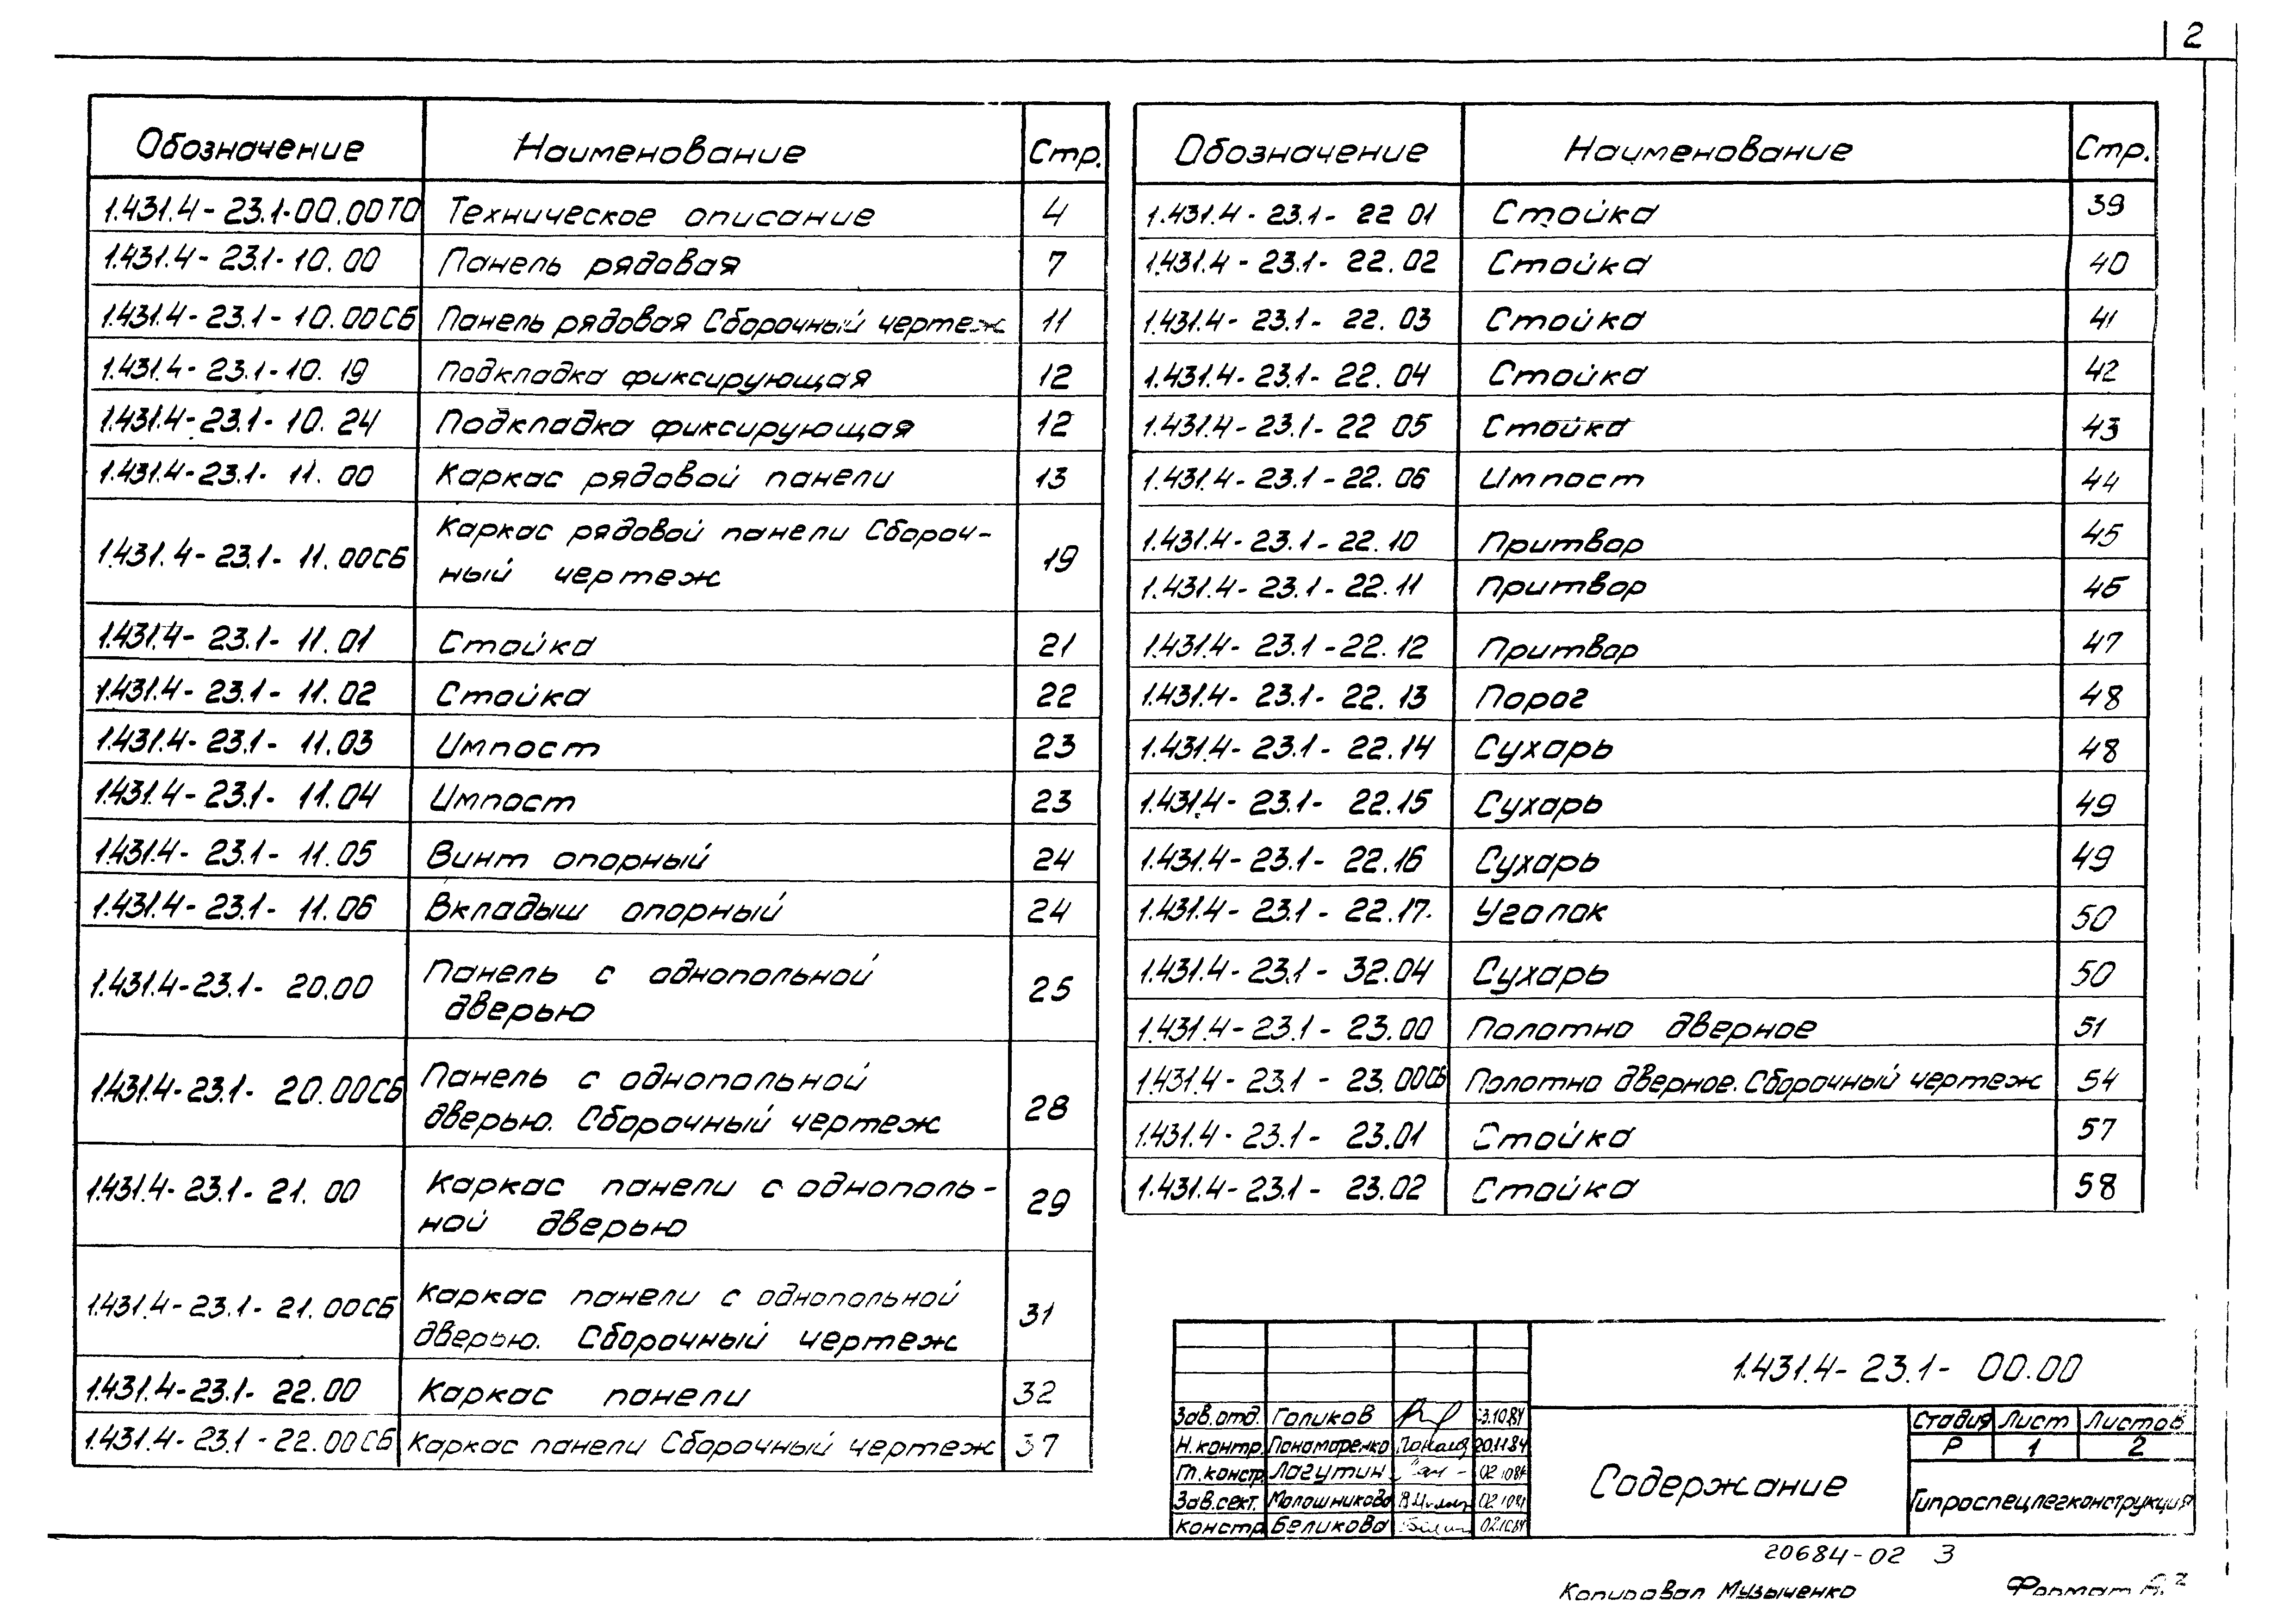 2
Обозначение Наименование Стр.
1.431.4-23.1-00.00ТО Техническое описание 4
1.431.4-23.1-10.00 Панель рядовая 7
1.431.4-23.1-10.00СБ Панель рядовая Сборочный чертеж 11
1.431.4-23.1-10.19 Подкладка фиксирующая 12
1.431.4-23.1-10.24 Подкладка фиксирующая 12
1.431.4-23.1-11.00 Каркас рядовой панели 13
1.431.4-23.1-11.00СБ Каркас рядовой панели Сбороч-
ный чертеж 19
1.431.4-23.1-11.01 Стойка 21
1.431.4-23.1-11.02 Стойка 22
1.431.4-23.1-11.03 Импост 23
1.431.4-23.1-11.04 Импост 23
1.431.4-23.1-11.05 Винт опорный 24
1.431.4-23.1-11.06 Вкладыш опорный 24
1.431.4-23.1-20.00 Панель с однопольной
дверью 25
1.431.4-23.1-20.00СБ Панель с однопольной
дверью. Сборочный чертеж 28
1.431.4-23.1-21.00 Каркас панели с однополь-
ной дверью 29
1.431.4-23.1-21.00СБ Каркас панели с однопольной
дверью. Сборочный чертеж 31
1.431.4-23.1-22.00 Каркас панели 32
1.431.4-23.1-22.00СБ Каркас панели Сборочный чертеж 37
Обозначение Наименование Стр.
1.431.4-23.1-22 01 Стойка 39
1.431.4-23.1-22.02 Стойка 40
1.431.4-23.1-22.03 Стойка 41
1.431.4-23.1-22.04 Стойка 42
1.431.4-23.1-22 05 Стойка 43
1.431.4-23.1-22.06 Импост 44
1.431.4-23.1-22.10 Притвор 45
1.431.4-23.1-22.11 Притвор 46
1.431.4-23.1-22.12 Притвор 47
1.431.4-23.1-22.13 Порог 48
1.431.4-23.1-22.14 Сухарь 48
1.431.4-23.1-22.15 Сухарь 49
1.431.4-23.1-22.16 Сухарь 49
1.431.4-23.1-22.17. Уголок 50
1.431.4-23.1-32.04 Сухарь 50
1.431.4-23.1-23.00 Полотно дверное 51
1.431.4-23.1-23.00СБ Полотно дверное. Сборочный чертеж 54
1.431.4-23.1-23.01 Стойка 57
1.431.4-23.1-23.02 Стойка 58
1.431.4-23.1-00.00
Зав.отд. Голиков 3.10.84
Н.контр. Пономаренко 20.11.84
Гл.констр. Лагутин 02.10.84
Зав.сект. Молошникова 02.10.84
Констр. Беликова 02.10.84
Содержание
Стадия Лист Листов
Р 1 2
Гипроспецлегконструкция
20684-02 3
Копировал Музыченко Формат